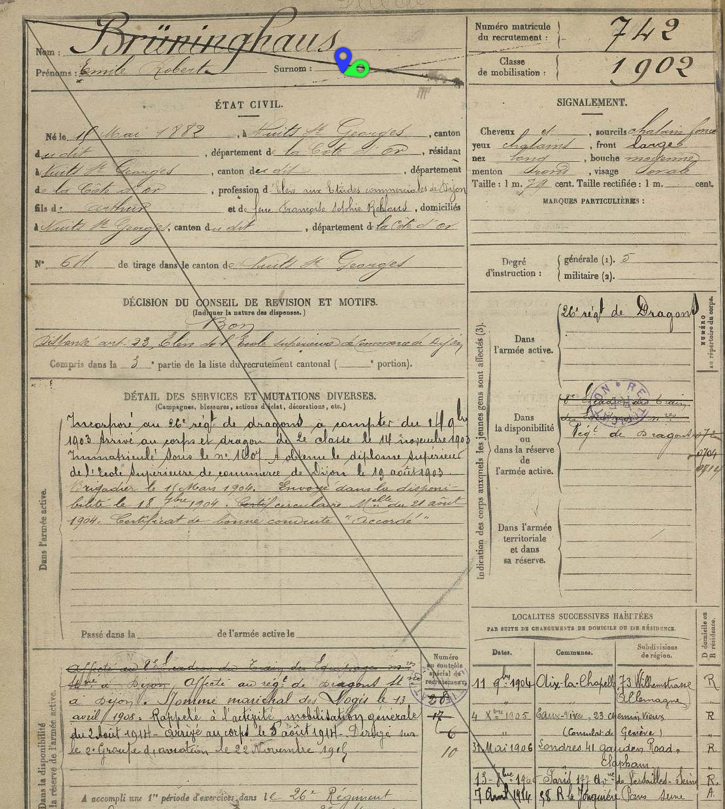 Nom : Brüninghaus
Prénoms : Emile Robert Surnom :
Numéro matricule du recrutement : 742
Classe de mobilisation : 1902
ÉTAT CIVIL.
Né le 15 Mai 1882, à Nuits St Georges, canton
dudit, département de la Côte d'or, résidant
à Nuits St Georges, canton de dit, département
de la Côte d'or, profession d'
fils de Arthur et de feue Françoise Sophie, domiciliés
à Nuits St Georges, canton dudit, département de la Côte d'or
N° de tirage dans le canton de Nuits St Georges
SIGNALEMENT.
Cheveux et sourcils chatain foncé
yeux chatains, front large
nez long, bouche moyenne
menton rond, visage ovale
Taille : 1 m. 79 cent. Taille rectifiée : 1 m. cent.
MARQUES PARTICULIÈRES :
Degré d'instruction : générale (1). 5
militaire (2).
DÉCISION DU CONSEIL DE REVISION ET MOTIFS.
(Indiquer la nature des dispenses.)
Bon
art. 23, Elève de l'Ecole supérieure de Commerce de Dijon
Compris dans la 3e partie de la liste du recrutement cantonal ( portion).
DÉTAIL DES SERVICES ET MUTATIONS DIVERSES.
(Campagnes, blessures, actions d'éclat, décorations, etc.)
Dans l'armée active.
Incorporé au 26e régt de dragons à compter du
1903 Arrivé au corps et dragon de 2e classe le 14 novembre 1903
Immatriculé sous le n° A obtenu le diplome supérieur
de l'Ecole Supérieure de commerce de Dijon le 19 août 1903
Brigadier le 15 Mars 1904. Envoyé dans la disponi
bilité le 18 7bre 1904. circulaire Melle du 21 août
1904. Certificat de bonne conduite "accordé"
Passé dans la de l'armée active le
Indication des corps auxquels les jeunes gens sont affectés (3).
NUMÉRO au répertoire du corps.
Dans l'armée active.
26e régt de Dragons
Dans la disponibilité ou dans la réserve de l'armée active.
Régt de Dragons
Dans l'armée territoriale et dans sa réserve.
LOCALITÉS SUCCESSIVES HABITÉES
PAR SUITE DE CHANGEMENTS DE DOMICILE OU DE RÉSIDENCE.
Dates. Communes. Subdivisions de région. D domicile ou R résidence.
11 9bre 1904 Aix-la-Chapelle 73 Wilhemstrasse Allemagne R
4 Xbre 1905 Eaux-Vives, 23 chemin Vieux R
(Consulat de Genève)
Mai 1906 Londres 41 Gauden Road, R
Clapham
Paris 177 Ave de Versailles Seine R.
7 Avril 1914 Paris Seine
Numéro au contrôle spécial du recrutement.
Dans la disponibilité
la réserve de l'armée active.
Affecté au Escadron du Train des Equipages
à Dijon Affecté au régt de Dragons
à Dijon. Nommé maréchal des logis le 13
avril 1908. Rappelé à l'activité mobilisation générale
du 2 août 1914. Arrivé au corps le 3 août 1914. Passé au
le 2e Groupe d'aviation le 22 Novembre
A accompli une 1re période d'exercices dans le 26e Régiment